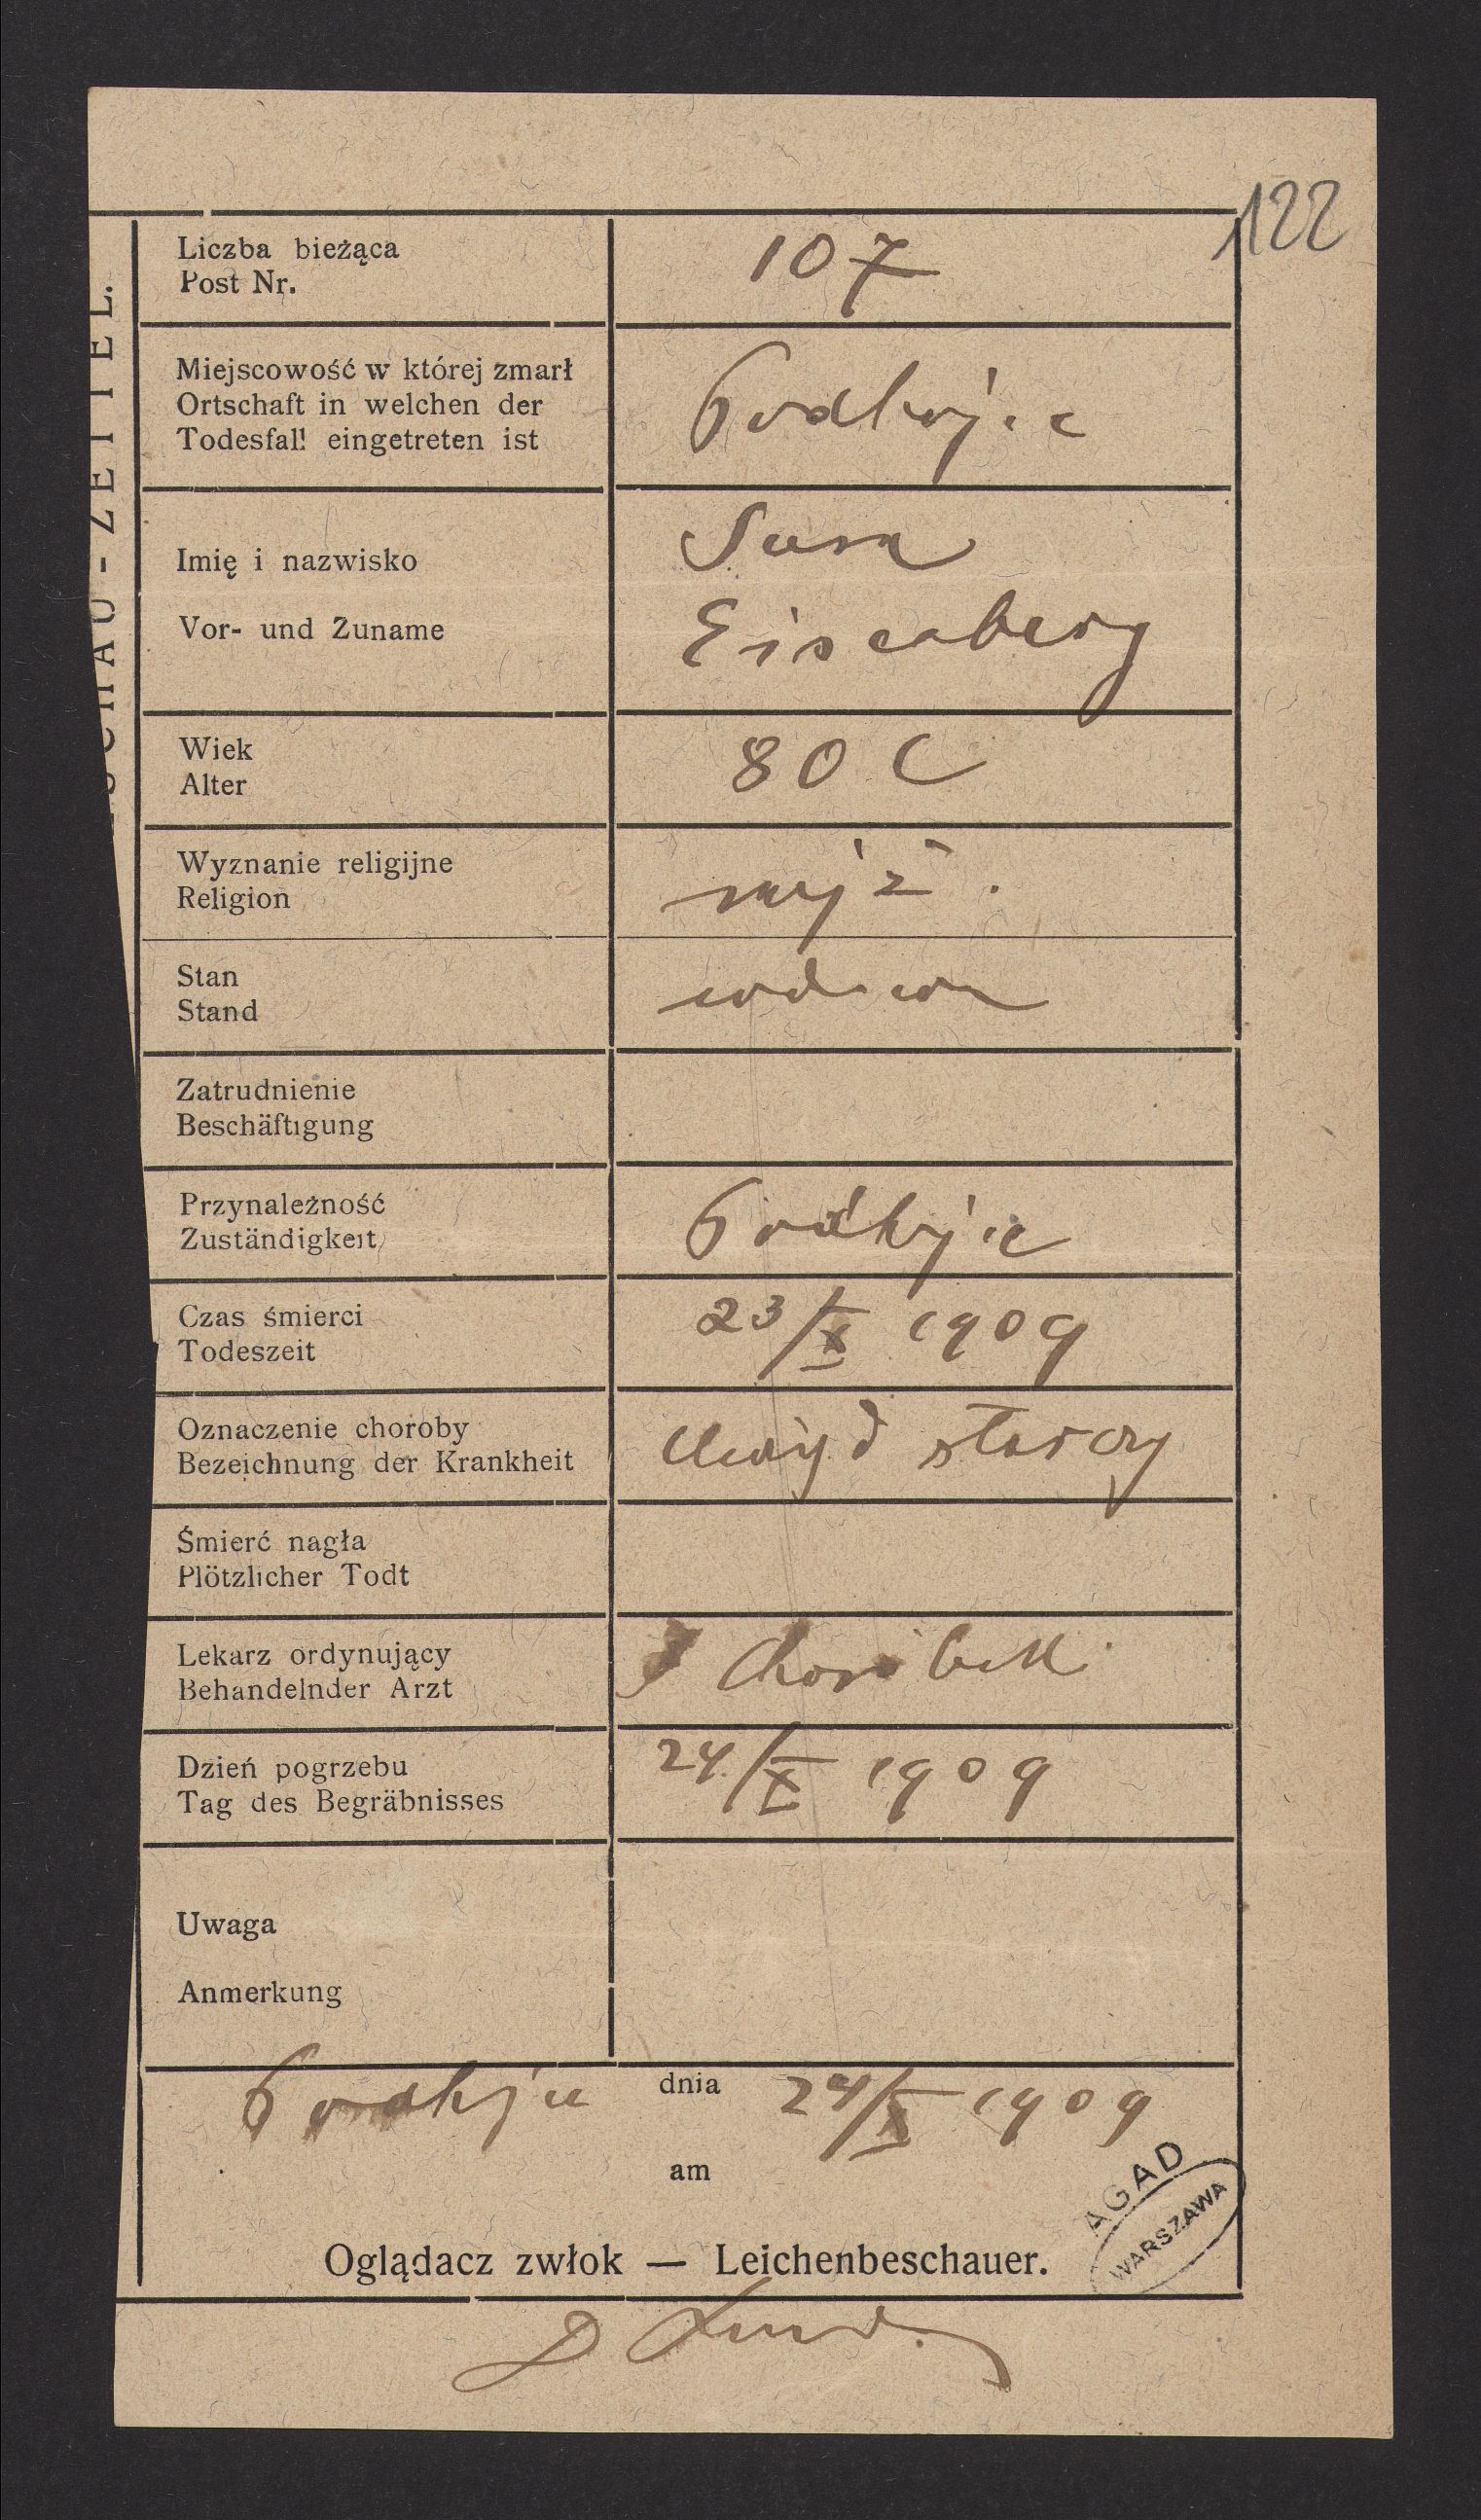 122
SCHAU-ZETTEL.
Liczba bieżąca
Post Nr.
107
Miejscowość w której zmarł
Ortschaft in welchen der
Todesfall eingetreten ist
Podhajce
Imię i nazwisko
Vor- und Zuname
Sara
Eisenberg
Wiek
Alter
80 l
Wyznanie religijne
Religion
mojż.
Stan
Stand
wdowa
Zatrudnienie
Beschäftigung
Przynależność
Zuständigkeit
Podhajce
Czas śmierci
Todeszeit
23/X 1909
Oznaczenie choroby
Bezeichnung der Krankheit
Uwiąd starczy
Śmierć nagła
Plötzlicher Todt
Lekarz ordynujący
Behandelnder Arzt
Dzień pogrzebu
Tag des Begräbnisses
24/X 1909
Uwaga
Anmerkung
Podhajce dnia 24/X 1909
am
AGAD
WARSZAWA
Oglądacz zwłok — Leichenbeschauer.